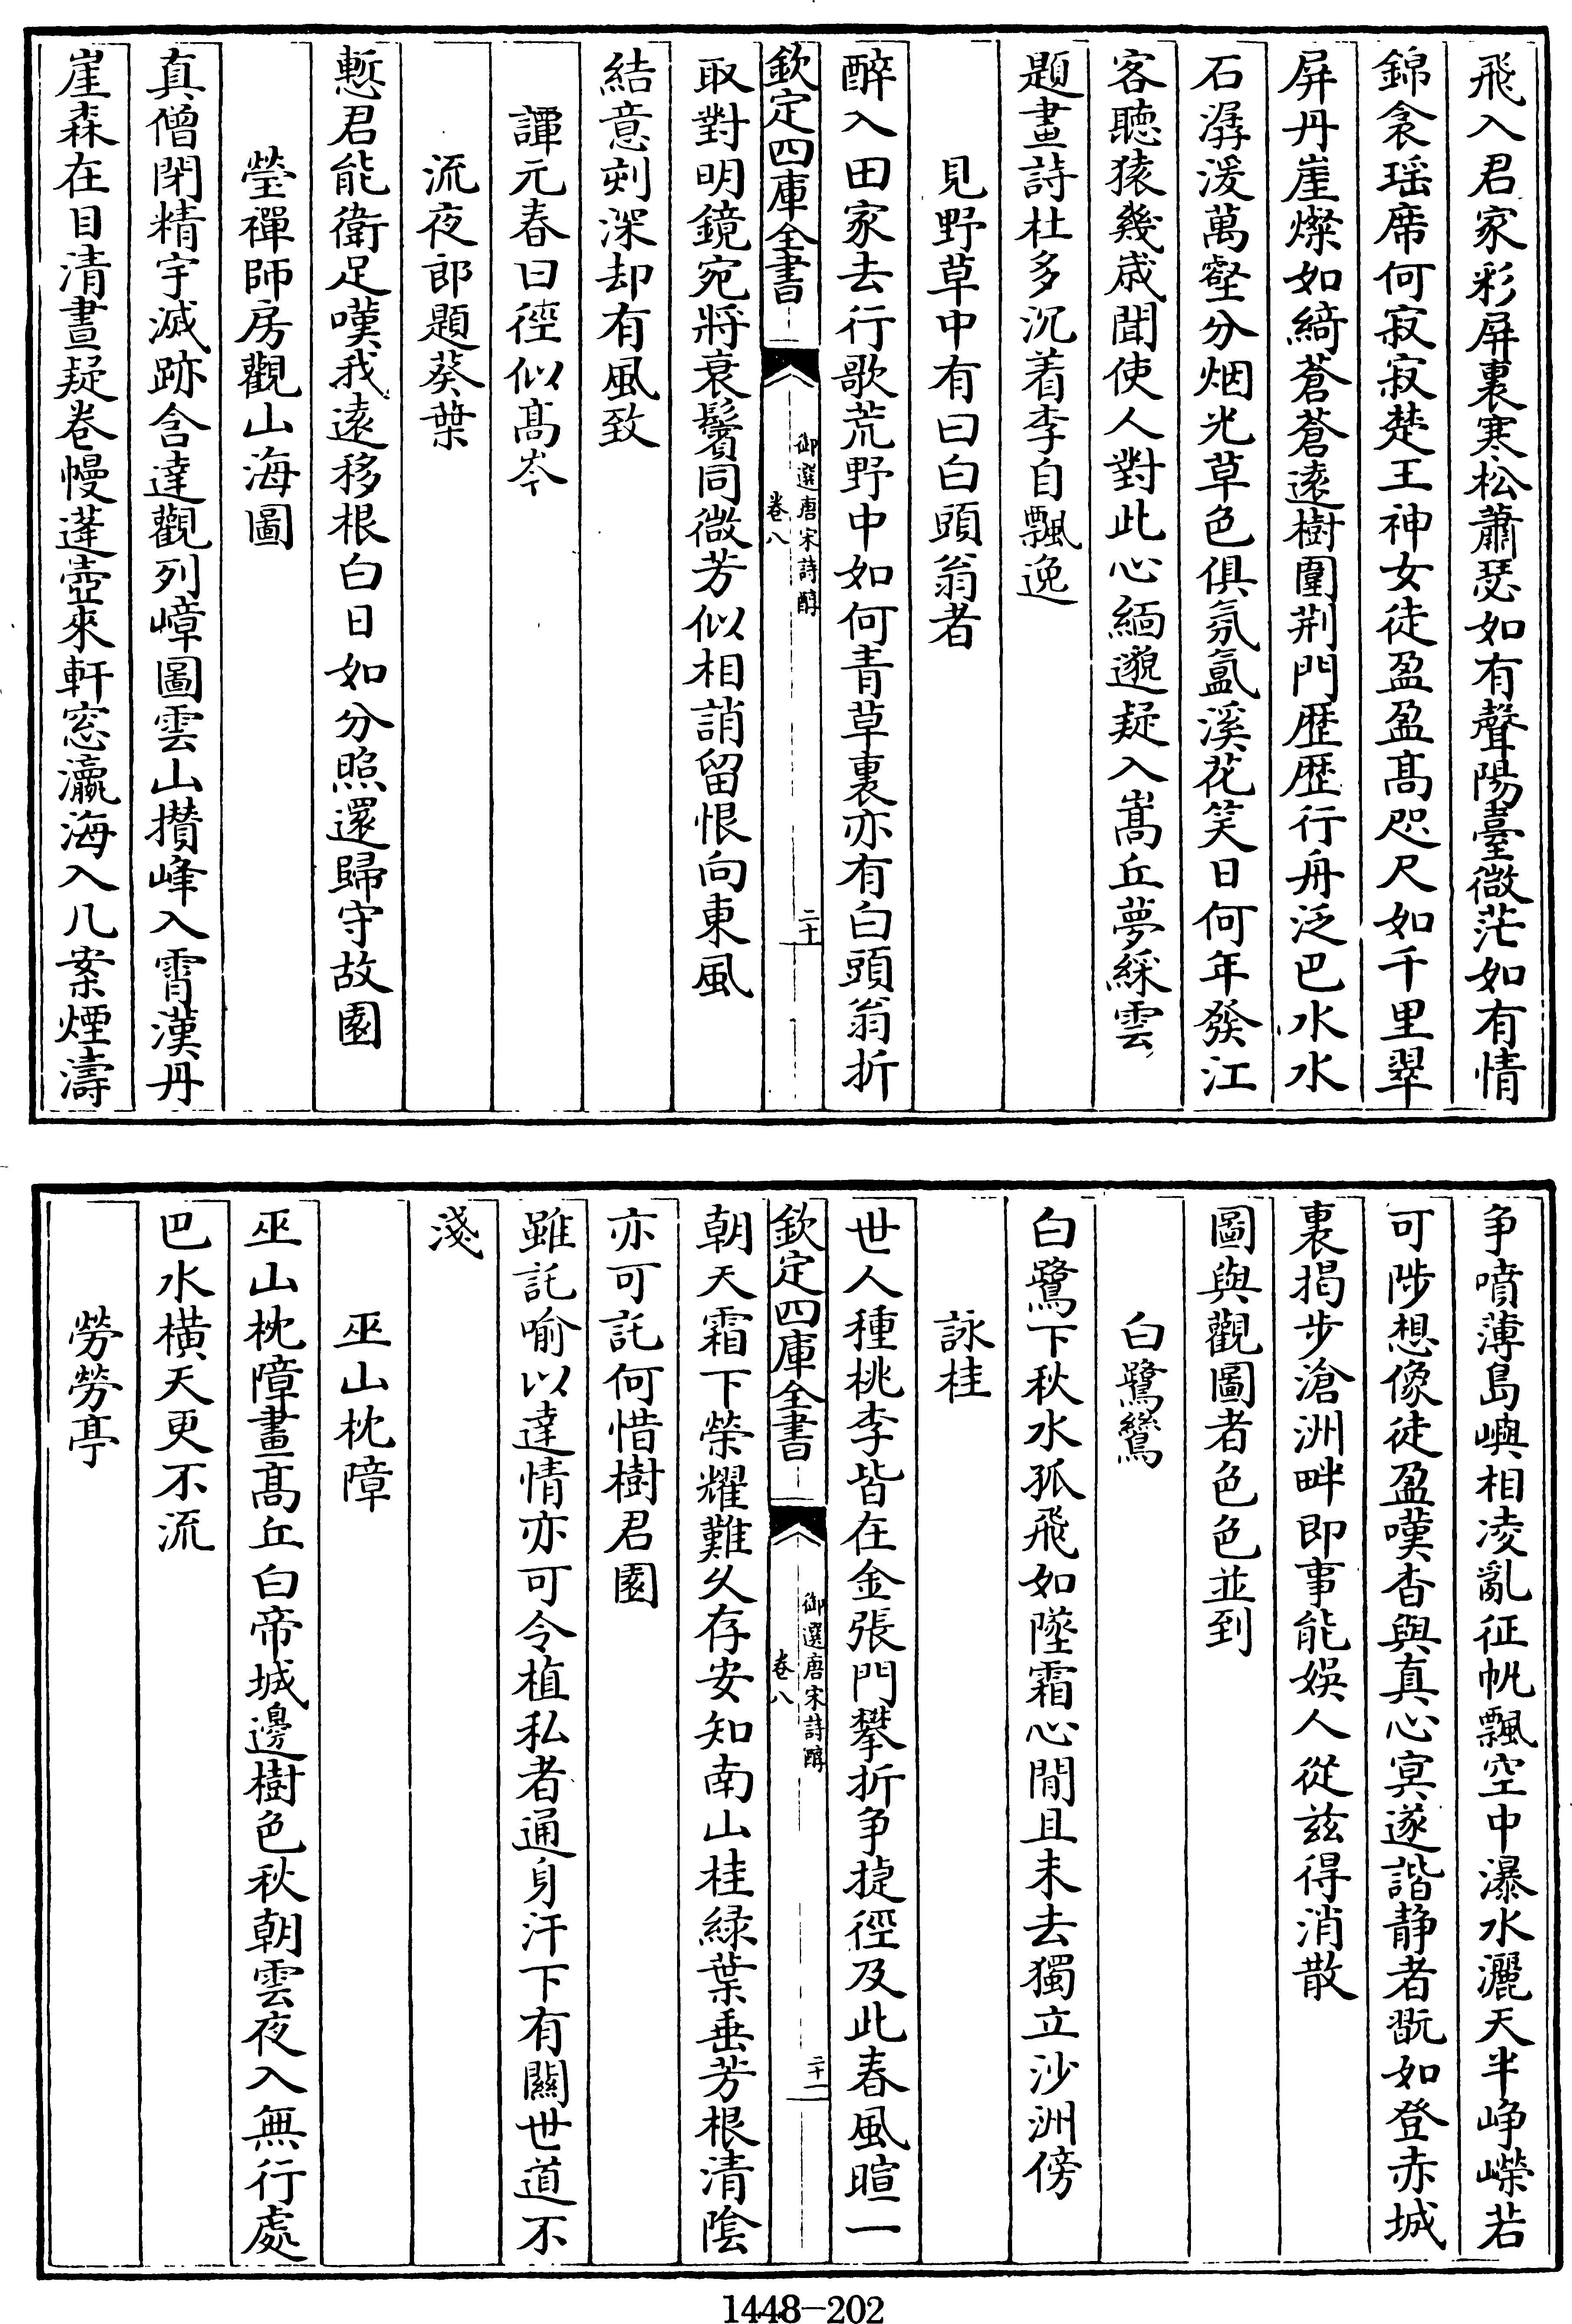 飛入君家彩屏裏寒松蕭瑟如有聲陽臺微茫如有情
錦衾瑶席何寂寂楚王神女徒盈盈髙咫尺如千里翠
屏丹崖燦如綺蒼蒼遠樹圍荆門歴歴行舟泛巴水水
石潺湲萬壑分烟光草色俱氛氲溪花笑日何年發江
客聽猿幾歲聞使人對此心緬邈疑入嵩丘夢綵雲
題畫詩杜多沉着李自飄逸
見野草中有曰白頭翁者
醉入田家去行歌荒野中如何青草裏亦有白頭翁折
欽定四庫全書
御選唐宋詩醇
卷八
二十
取對明鏡宛將衰鬢同微芳似相誚留恨向東風
結意刻深却有風致
譚元春曰徑似髙岑
流夜郎題葵葉
慙君能衛足嘆我遠移根白日如分照還歸守故園
瑩禪師房觀山海圖
真僧閉精宇滅跡含達觀列嶂圖雲山攅峰入霄漢丹
崖森在目清晝疑卷幔蓬壺來軒窓瀛海入几案煙濤
争噴薄島嶼相凌亂征帆飄空中瀑水灑天半峥嶸若
可陟想像徒盈嘆杳與真心冥遂諧静者翫如登赤城
裏揭步滄洲畔即事能娱人從兹得消散
圖與觀圖者色色並到
白鷺鷥
白鷺下秋水孤飛如墜霜心閒且未去獨立沙洲傍
詠桂
世人種桃李皆在金張門攀折争捷徑及此春風暄一
欽定四庫全書
御選唐宋詩醇
卷八
二十一
朝天霜下榮耀難久存安知南山桂緑葉垂芳根清隂
亦可託何惜樹君園
雖託喻以達情亦可令植私者通身汗下有闗世道不
淺
巫山枕障
巫山枕障畫髙丘白帝城邊樹色秋朝雲夜入無行處
巴水横天更不流
勞勞亭
1448-202